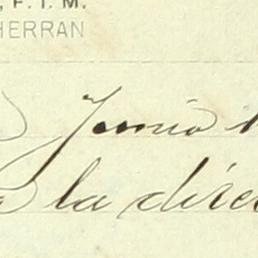 , F. T. M.
HERRAN
Junio
la direc